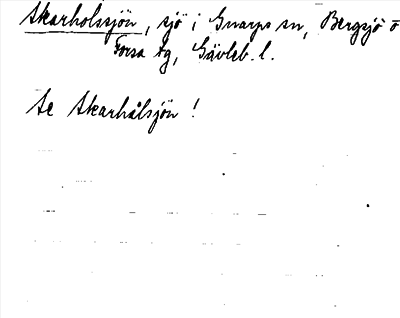 Skarholssjön, sjö i Gnarps sn, Bergsjö o
Forsa tg, Gävleb. l.
Se Skarhålsjön !